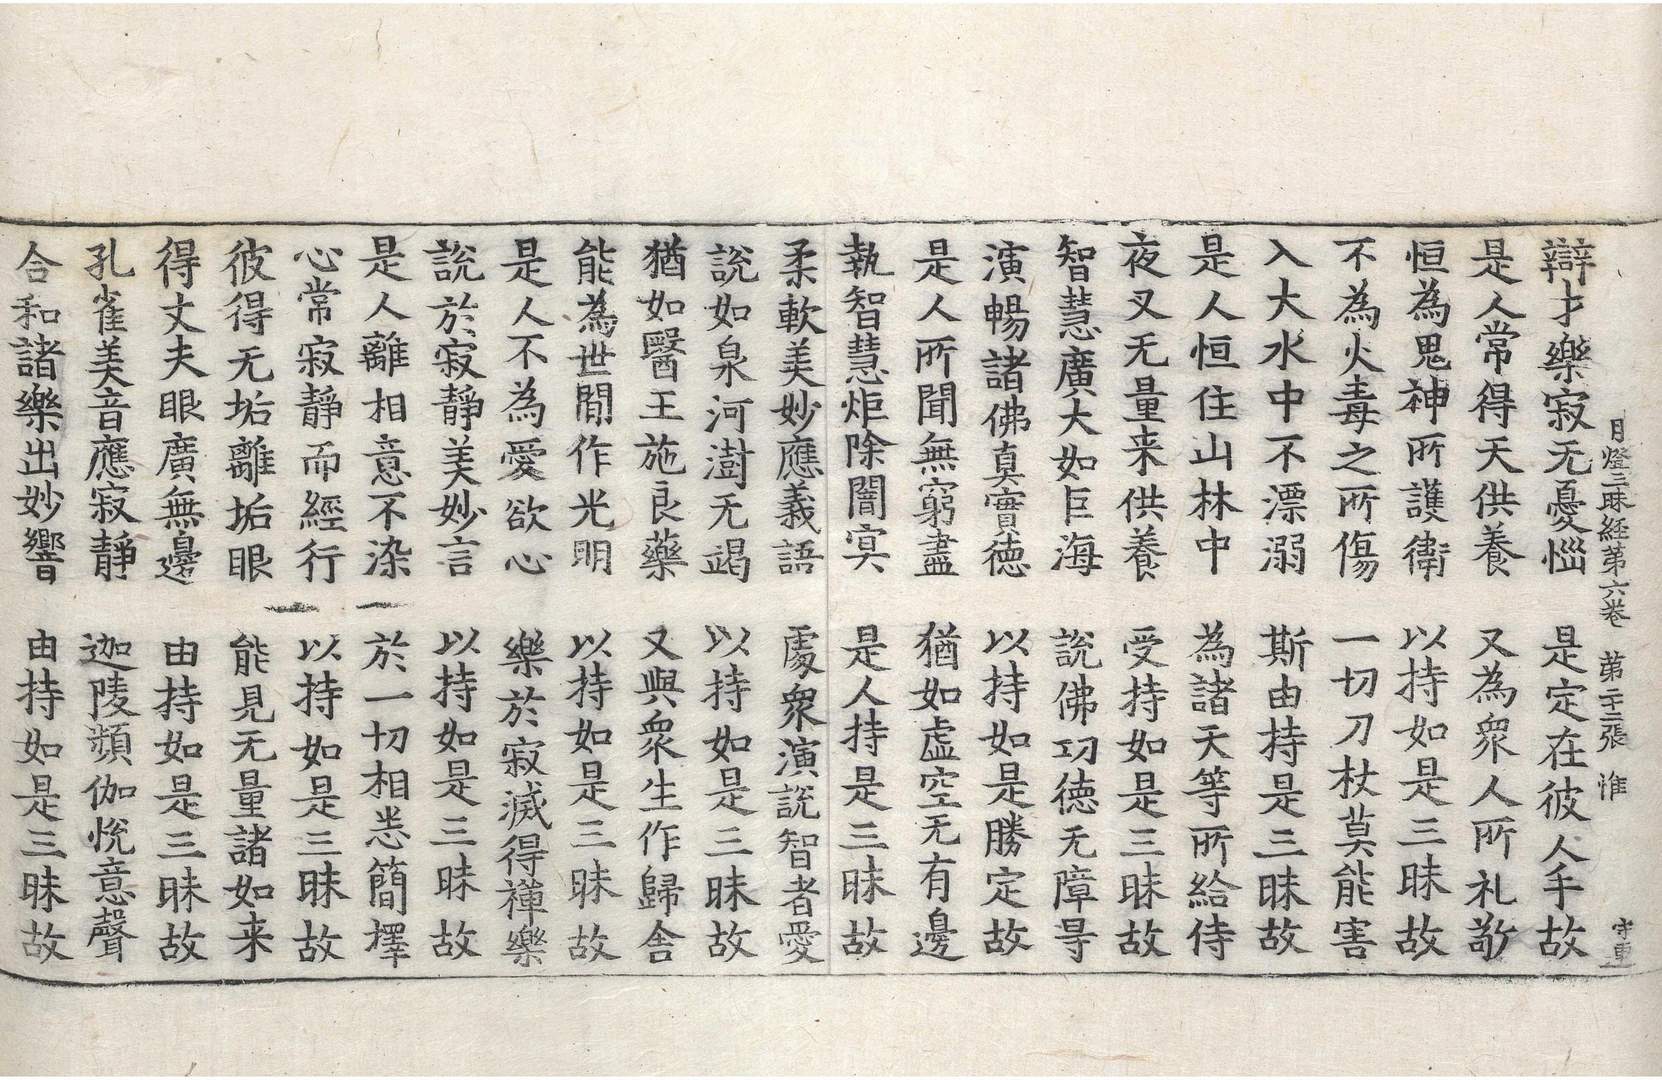 月燈三昧経第六卷 第二十二張 谁
辯才樂寂无憂惱 是定在彼人手故
是人常得天供養 又為衆人所礼敬
恒為鬼神所護衛 以持如是三昧故
不為火毒之所傷 一切刀杖莫能害
入大水中不漂溺 斯由持是三昧故
是人恒住山林中 為諸天等所給侍
夜叉无量来供養 受持如是三昧故
智慧廣大如巨海 說佛功德无障㝵
演暢諸佛真實德 以持如是勝定故
是人所聞無窮盡 猶如虛空无有邊
執智慧炬除闇㝠 是人持是三昧故
柔軟美妙應義語 處衆演說智者愛
說如泉河澍无竭 以持如是三昧故
猶如醫王施良藥 又與衆生作歸舍
能為世間作光明 以持如是三昧故
是人不為愛欲心 樂於寂滅得禪樂
說於寂靜美妙言 以持如是三昧故
是人離相意不染 於一切相悉簡擇
心常寂靜而經行 以持如是三昧故
彼得无垢離垢眼 能見无量諸如来
得丈夫眼廣無邊 由持如是三昧故
孔雀美音應寂靜 迦陵頻伽悅意聲
合和諸樂出妙響 由持如是三昧故